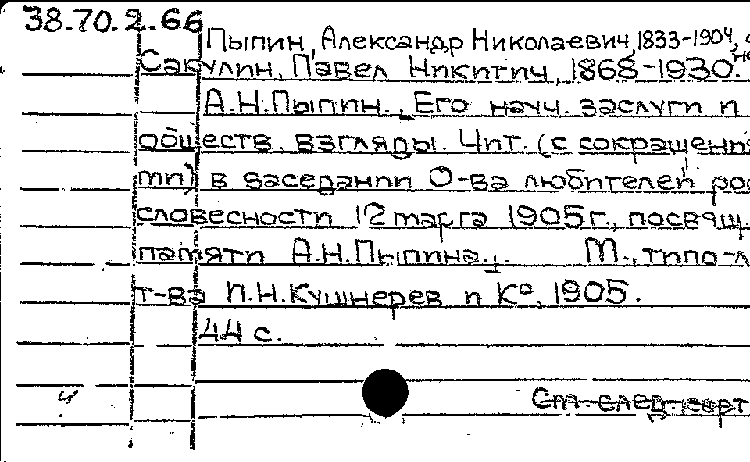 38.70.2.66
Пыпин, Александр Николаевич, 1833-1904,
Сакулин, Павел Никитич, 1868-1930.
А.Н.Пыпин. Его науч. заслуги и
обществ. взгляды. Чит. (с сокращения
ми) в заседании О-ва любителей рос
словесности 12 марта 1905 г., посвящ.
памяти А.Н.Пыпина. М., типо-л
т-ва И.Н.Кушнерев и К°, 1905.
44 с.
См. след. карт